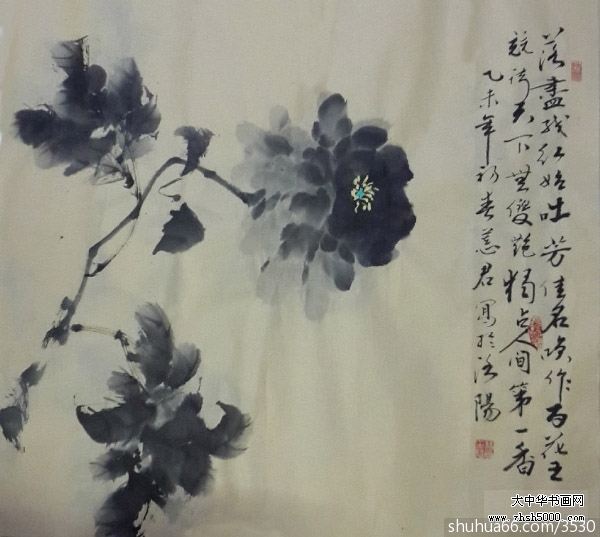 落盡残红始吐芳佳名唤作百花王
競誇天下無雙艳獨占人间第一香
乙未年初春君寫於洛陽
大中华书画网
www.zhsh5000.com
shuhua66.com/3530